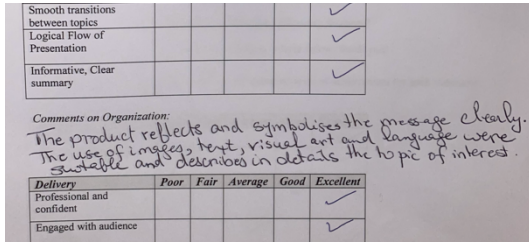 Smooth transitions
between topics
Logical Flow of
Presentation
Informative, Clear
summary
Comments on Organization:
The product reflects and symbolises the message clearly.
The use of images, text, visual art and language were
suitable and describes in details the topic of interest.
Delivery Poor Fair Average Good Excellent
Professional and
confident
Engaged with audience